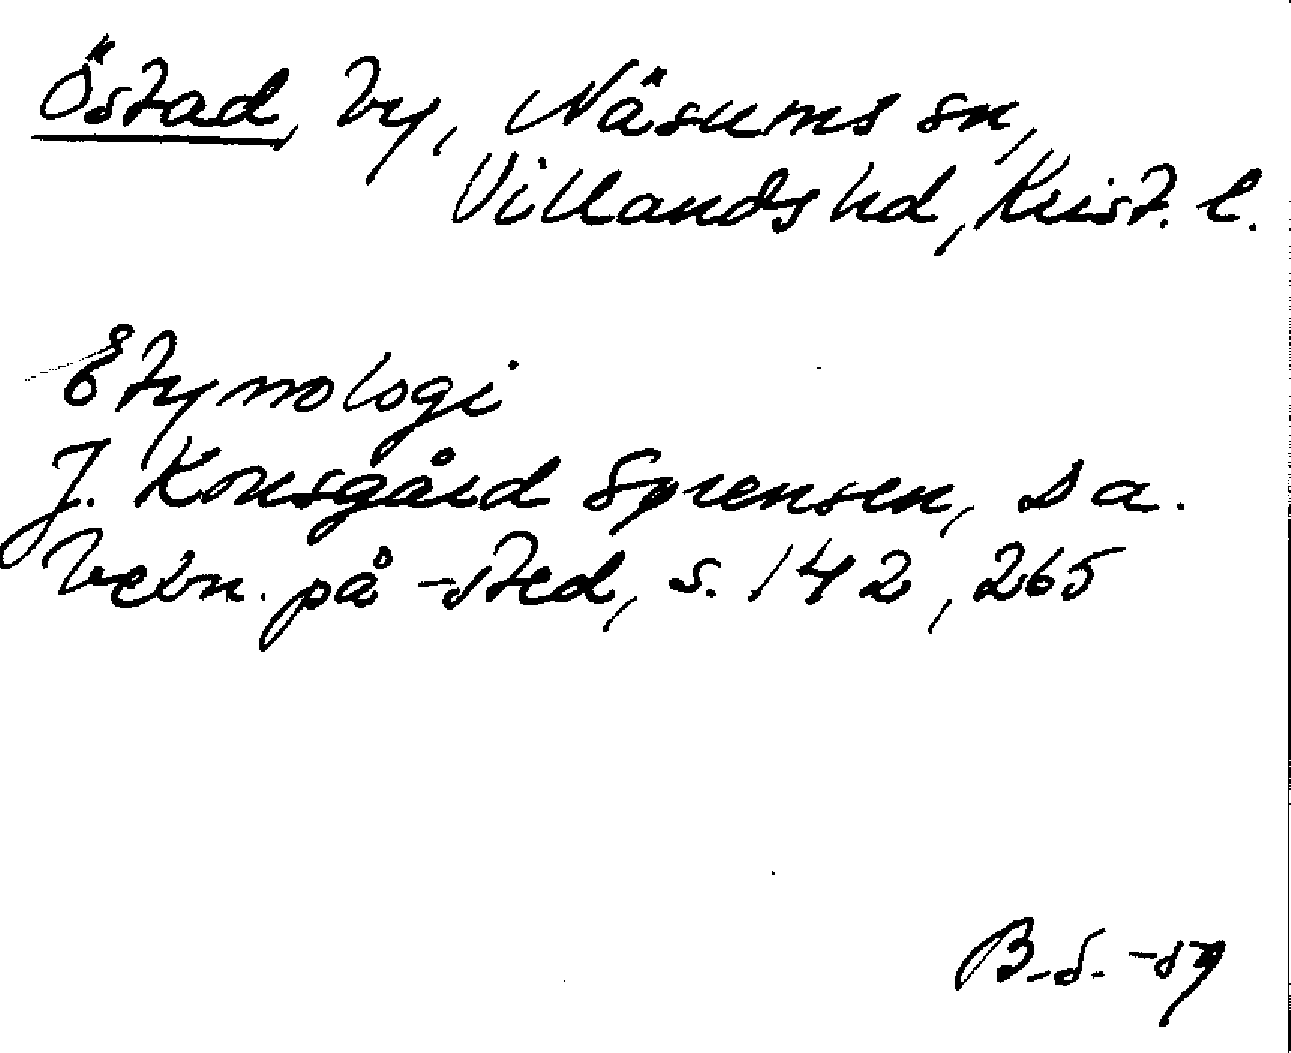 Östad, by, Näsums sn,
Villands hd, Krist. l.
Etymologi
J. Kousgård Sørensen, Da.
bebn. på -sted, s. 142, 265
B-S. -59